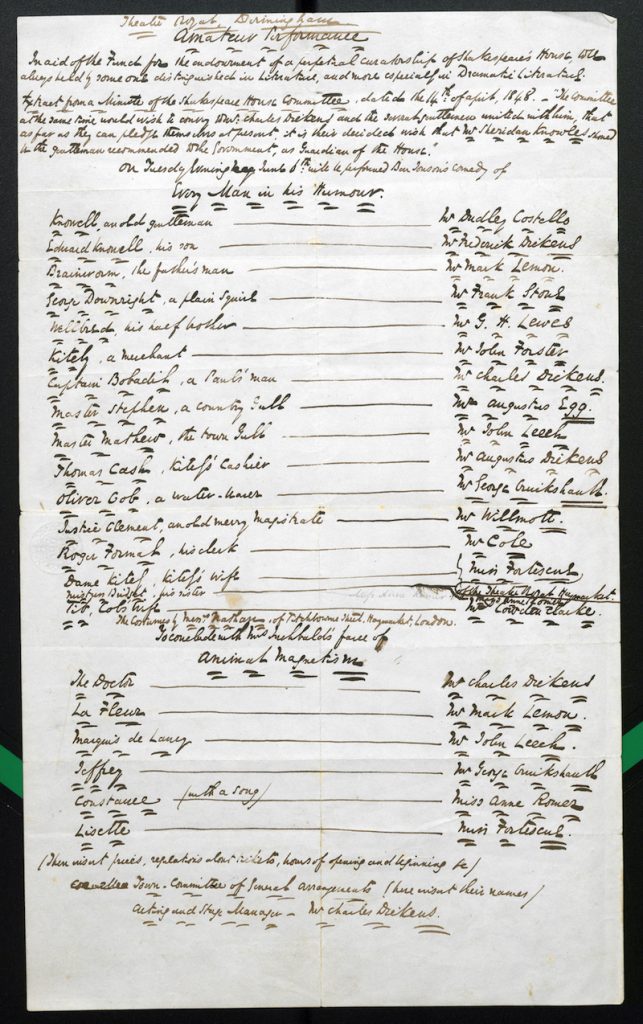 Theatre Royal, Birmingham
Amateur Performance
In aid of the Fund for the endowment of a perpetual curatorship of Shakespeare's House, to be
always held by some one distinguished in Literature, and more especially in Dramatic Literature.
Extract from a Minute of the Shakespeare House Committee, dated the 14th of April, 1848. - "The Committee
at the same time would wish to convey to Mr. Charles Dickens and the several gentlemen united with him, that
as far as they can pledge themselves at present, it is their decided wish that Mr Sheridan Knowles should
be the gentleman recommended to the Government, as Guardian of the House."
On Tuesday Evening June 6th will be performed Ben Jonson's comedy of
Every Man in his Humour.
Knowell, an old gentleman Mr Dudley Costello
Edward Knowell, his son Mr Frederick Dickens
Brainworm, the father's man Mr Mark Lemon.
George Downright, a plain Squire Mr Frank Stone
Wellbred, his half brother Mr G. H. Lewes
Kitely, a merchant Mr John Forster
Captain Bobadil, a Paul's man Mr Charles Dickens.
Master Stephen, a country Gull Mr Augustus Egg.
Master Mathew, the town Gull Mr John Leech
Thomas Cash, Kitely's Cashier Mr Augustus Dickens
Oliver Cob, a water-bearer Mr George Cruikshank.
Justice Clement, an old merry Magistrate Mr Willmott.
Roger Formal, his clerk Mr Cole
Dame Kitely, Kitely's wife Miss Fortescue
Mistress Bridget, his sister of the Theatre Royal Haymarket
Tib, Cob's wife Cowden Clarke.
The Costumes by Messrs Nathan, of Titchbourne Street, Haymarket, London.
To conclude with Mrs Inchbald's farce of
Animal Magnetism
The Doctor Mr Charles Dickens
La Fleur Mr Mark Lemon.
Marquis de Lancy Mr John Leech.
Jeffrey Mr George Cruikshank
Constance (with a song) Miss Anne Romer
Lisette Miss Fortescue.
(Then insert prices, regulations about tickets, hours of opening and beginning &c)
Town-Committee of General arrangements (here insert their names)
Acting and Stage Manager - Mr Charles Dickens.